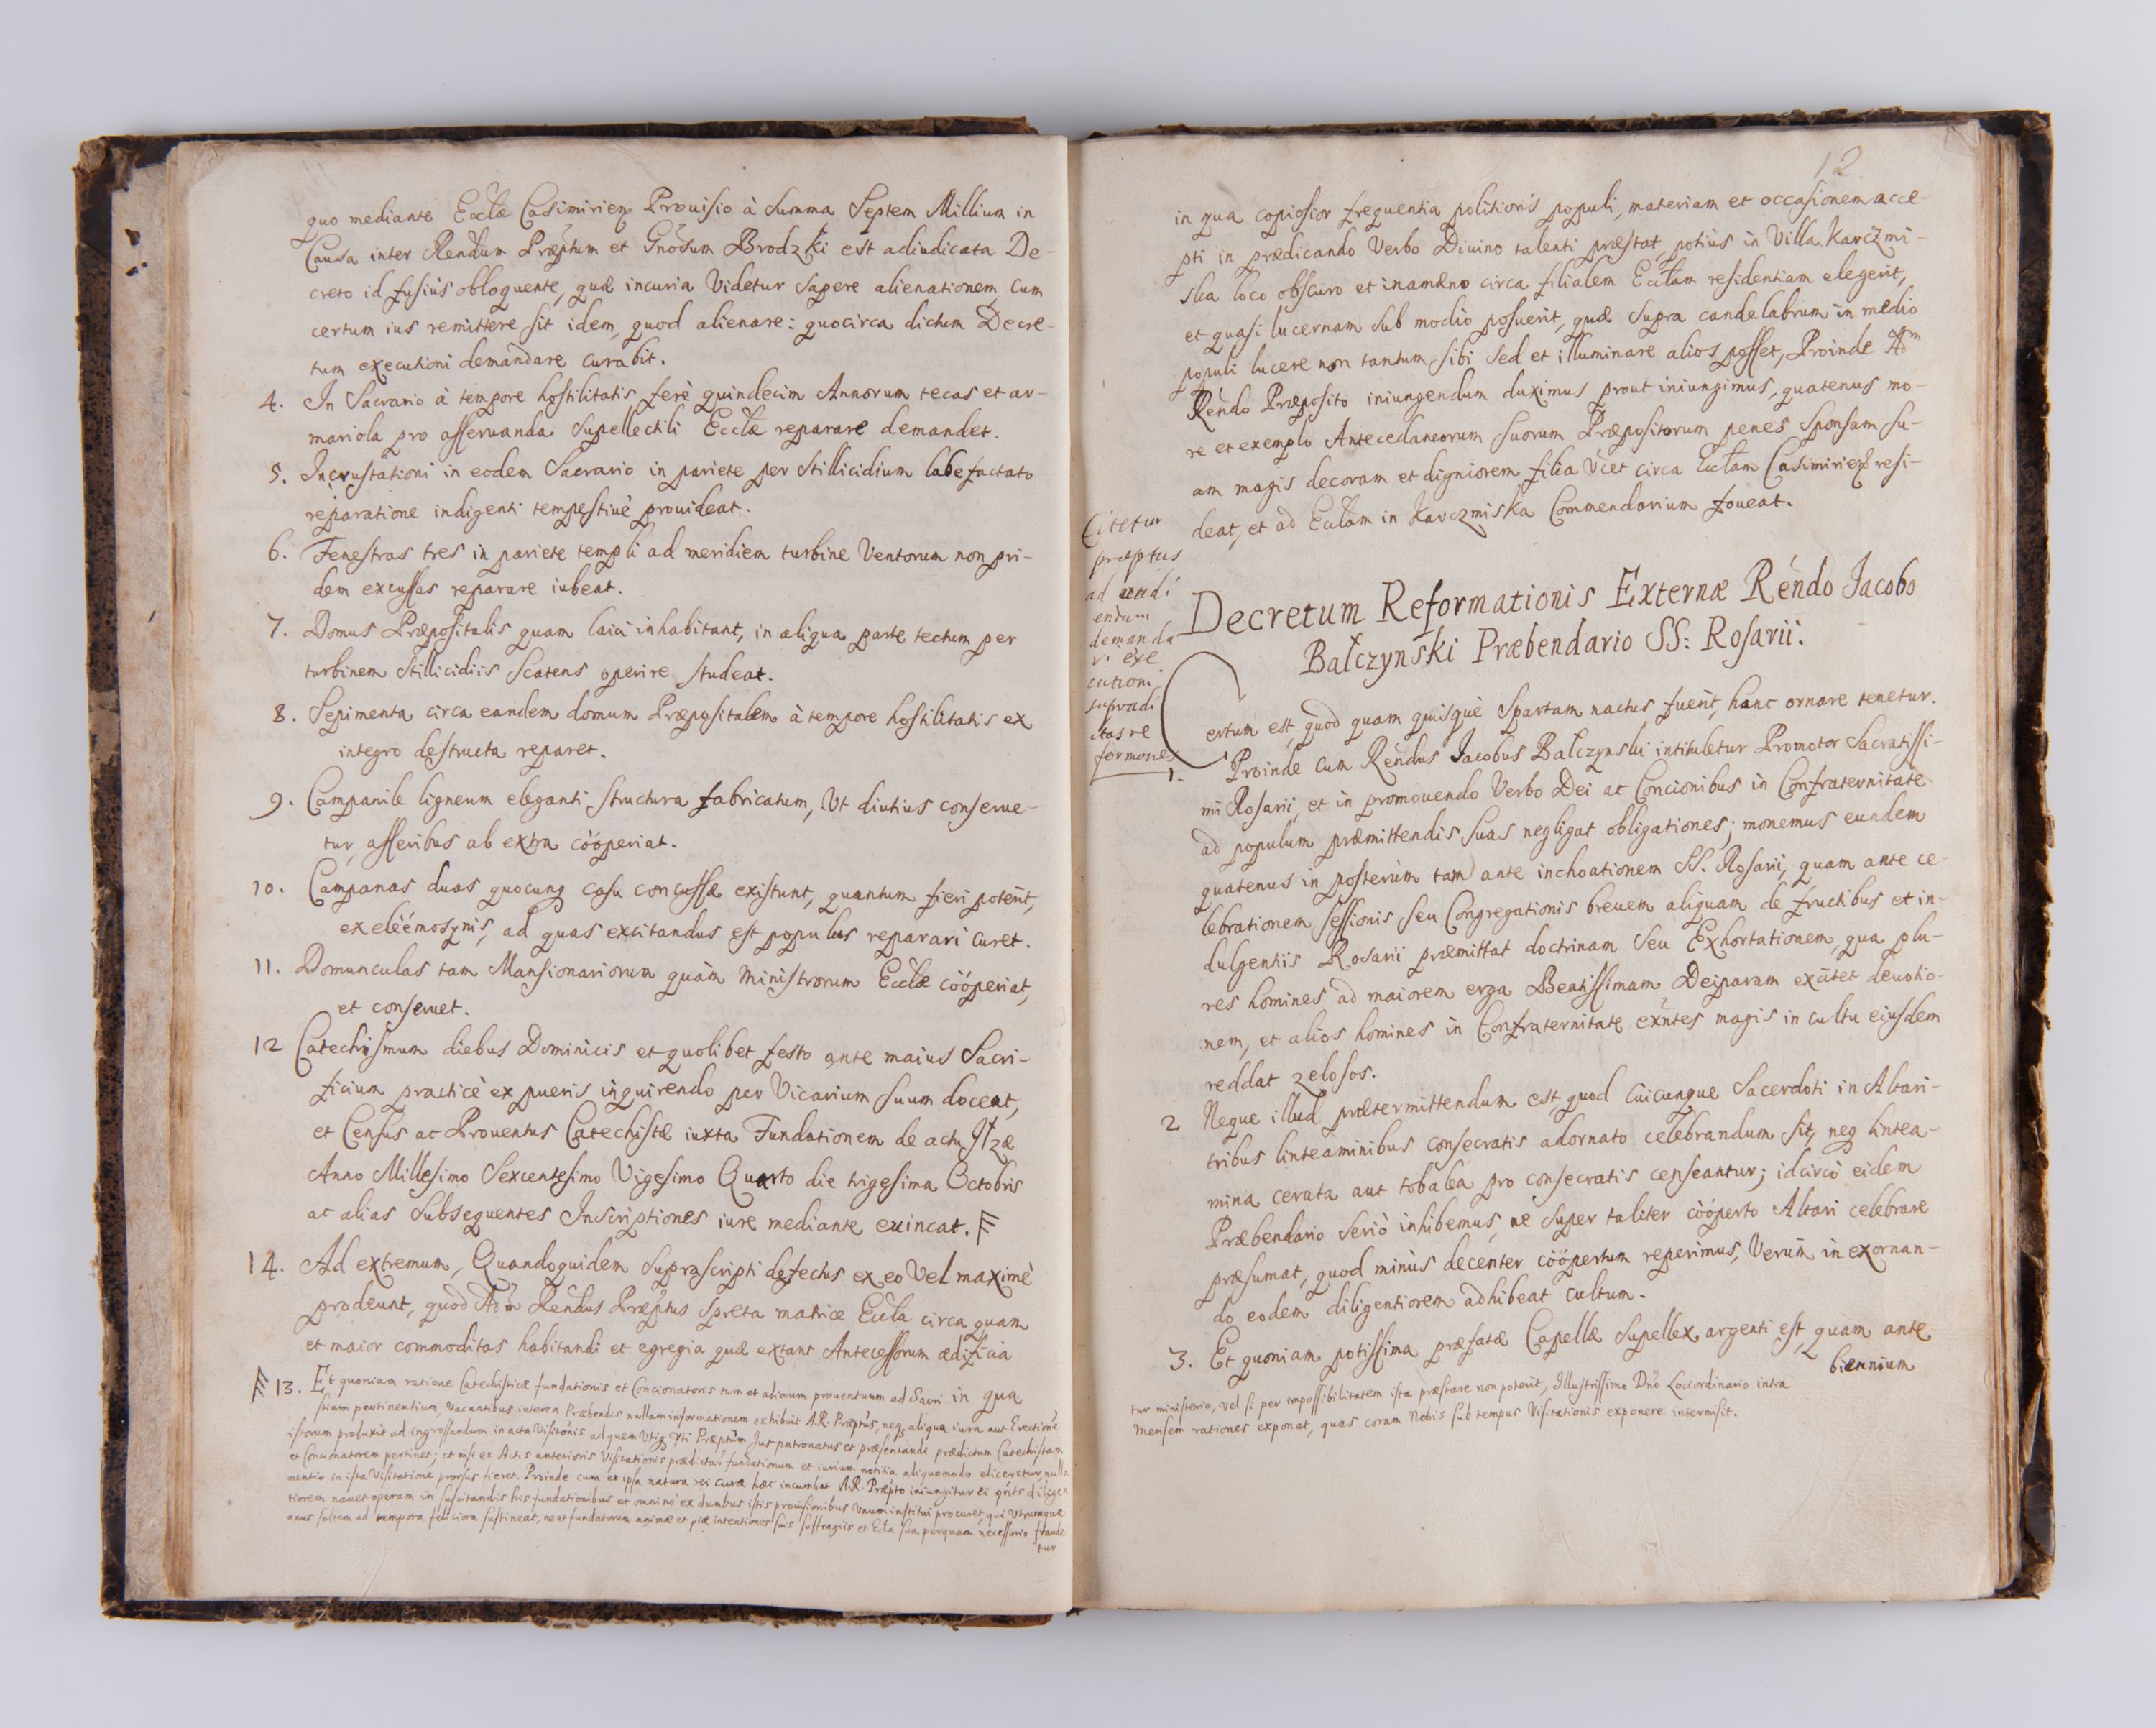 quo mediante Eccłæ Casimirieñ Prouisio à Summa Septem Millium in
Causa inter Rendum Præptum et Gnosum Brodzki est adiudicata De-
creto id fusius obloquente, quæ incuria Videtur Sapere alienationem, cum
certum ius remittere sit idem, quod alienare: quocirca dictum Decre-
tum executioni demandare curabit.
4. In Sacrario à tempore hostilitatis ferè quindecim Annorum tecas et ar-
mariola pro asseruanda Supellectili Eccłæ reparare demandet.
5. Incrustationi in eodem Sacrario in pariete per Stillicidium labefactato
reparatione indigenti tempestiuè prouideat.
6. Fenestras tres in pariete templi ad meridiem turbine Ventorum non pri-
dem excussas reparare iubeat.
7. Domus Præpositalis quam laici inhabitant, in aliqua parte tectum per
turbinem Stillicidiis Scatens operire studeat.
8. Sepimenta circa eandem domum Præpositalem à tempore hostilitatis ex
integro destructa reparet.
9. Campanile ligneum eleganti structura fabricatum, Vt diutius conserue-
tur, asseribus ab extra cööperiat.
10. Campanas duas quocunq casu concussæ existunt, quantum fieri poterit,
ex eleémosynis, ad quas excitandus est populus reparari curet.
11. Domunculas tam Mansionariorum quàm Ministrorum Eccłæ cööperiat,
et conseruet.
12 Catechismum diebus Dominicis et quolibet festo ante maius Sacri-
ficium practicè ex pueris inquirendo per Vicarium suum doceat,
et Census ac Prouentus Catechistæ iuxta Fundationem de actu
Anno Millesimo Sexcentesimo Vigesimo Quarto die trigesima Octobris
ac alias Subsequentes Inscriptiones iure mediante euincat.
14. Ad extremum, Quandoquidem Suprascripti defectus ex eo Vel maximè
prodeunt, quod Adm Rendus Præptus Spreta matrice Eccła circa quam
et maior commoditas habitandi et egregia quæ extant Antecessorum ædificia
in qua
13. Et quoniam ratione Catechisticæ fundationis et Concionatoris tum et aliorum prouentuum ad Sacri-
stiam pertinentium, Vacantibus interea Præbendis nullam informationem exhibuit A.R. Præptus, neq aliqua iura aut Erectione
istorum produxit ad ingrossandum in acta Visitonis ad quem Vtiq Præptum Jus patronatus et præsentandi prædictum Catechistam
et Concionatorem pertinet; et nisi ex Actis anterioris Visitationis prædictar fundationum et iurium notitia aliquomodo eliceretur, nulla
mentio in ista Visitatione prorsus fieret. Proinde cum ex ipsa natura rei cura hæc incumbat A.R. Præpto iniungitur ei qnts diligen
tiorem nauet operam in suscitandis his fundationibus et omninò ex duabus istis prouisionibus Vnum institui procuret, qui Vtrumque
onus saltem ad tempora feliciora sustineat, ne et fundatorum animæ et piæ intentiones suis suffragiis et Eccła sua perquam necessario fraude
tur
12
in qua copiosior frequentia politioris populi, materiam et occasionem acce-
pti in prædicando Verbo Diuino talenti præstat, potius in Villa Karczmi-
ska loco obscuro et inamæno circa filialem Eccłam residentiam elegerit,
et quasi lucernam sub modio posuerit, quæ Supra candelabrum in medio
populi lucere non tantum sibi sed et illuminare alios posset, Proinde Adm
Rendo Præposito iniungendum duximus prout iniungimus, quatenus mo-
re et exemplo Antecedaneorum suorum Præpositorum penes Sponsam su-
am magis decoram et digniorem filia Vcet circa Eccłam Casimirieñ resi-
deat, et ad Eccłam in Karczmiska Commendarium foueat.
Citetur
præptus
ad audi
endum
demanda
ri exe
cutioni
supradi
ctas re
formones
Decretum Reformationis Externæ Réndo Jacobo
Bałczynski Præbendario SS: Rosarii.
Certum est, quod quam quisque Spartam nactus fuerit, hanc ornare tenetur.
1. Proinde cum Rendus Jacobus Bałczynski intituletur Promotor Sacratissi-
mi Rosarii, et in promouendo Verbo Dei ac Concionibus in Confraternitate
ad populum præmittendis suas negligat obligationes; monemus eundem
quatenus in posterùm tam ante inchoationem SS. Rosarii, quam ante ce-
lebrationem sessionis seu Congregationis breuem aliquam de fructibus et in-
dulgentiis Rosarii præmittat doctrinam seu Exhortationem, qua plu-
res homines ad maiorem erga Beatissimam Deiparam excitet deuotio-
nem, et alios homines in Confraternitate exntes magis in cultu eiusdem
reddat zelosos.
2 Neque illud prætermittendum est, quod cuicunque Sacerdoti in Altari
tribus linteaminibus consecratis adornato celebrandum sit, neq lintea-
mina cerata aut tobalea pro consecratis censeantur; idcirco eidem
Præbendario seriò inhibemus, ne super taliter cööperto Altari celebrare
præsumat, quod minùs decenter cööpertum reperimus, Verùm in exornan-
do eodem diligentiorem adhibeat cultum.
3. Et quoniam potissima præfatæ Capellæ Supellex argenti est, quam ante
biennium
tur ministerio, vel si per impossibilitatem ista præstare non poterit, Illustrissimo Dño Locordinario intra
mensem rationes exponat, quas coram Nobis sub tempus Visitationis exponere intermisit.